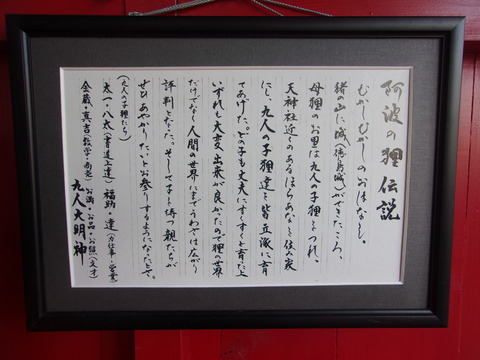 阿波の狸伝説
むかしむかしのおはなし。
猪の山に城(徳島城)ができたころ、
母狸のお里は九人の子狸をつれ、
天神社近くのあるほらあなを住み家
にし、九人の子狸達を皆立派に育
てあげた。どの子も丈夫にすくすくと育った上
いずれも大変出来が良かたので狸の世界
だけでなく人間の世界にまでうわさは広がり
評判となった。そして子を持つ親たちが
ぜひあやかりたいとお参りするようになったとさ。
(九人の子狸たち)
太一・八太(書道上達) 福助・達(力仕事・営業)
金蔵・真吉(数学・商売) お満・お品・お照(文才)
九人大明神